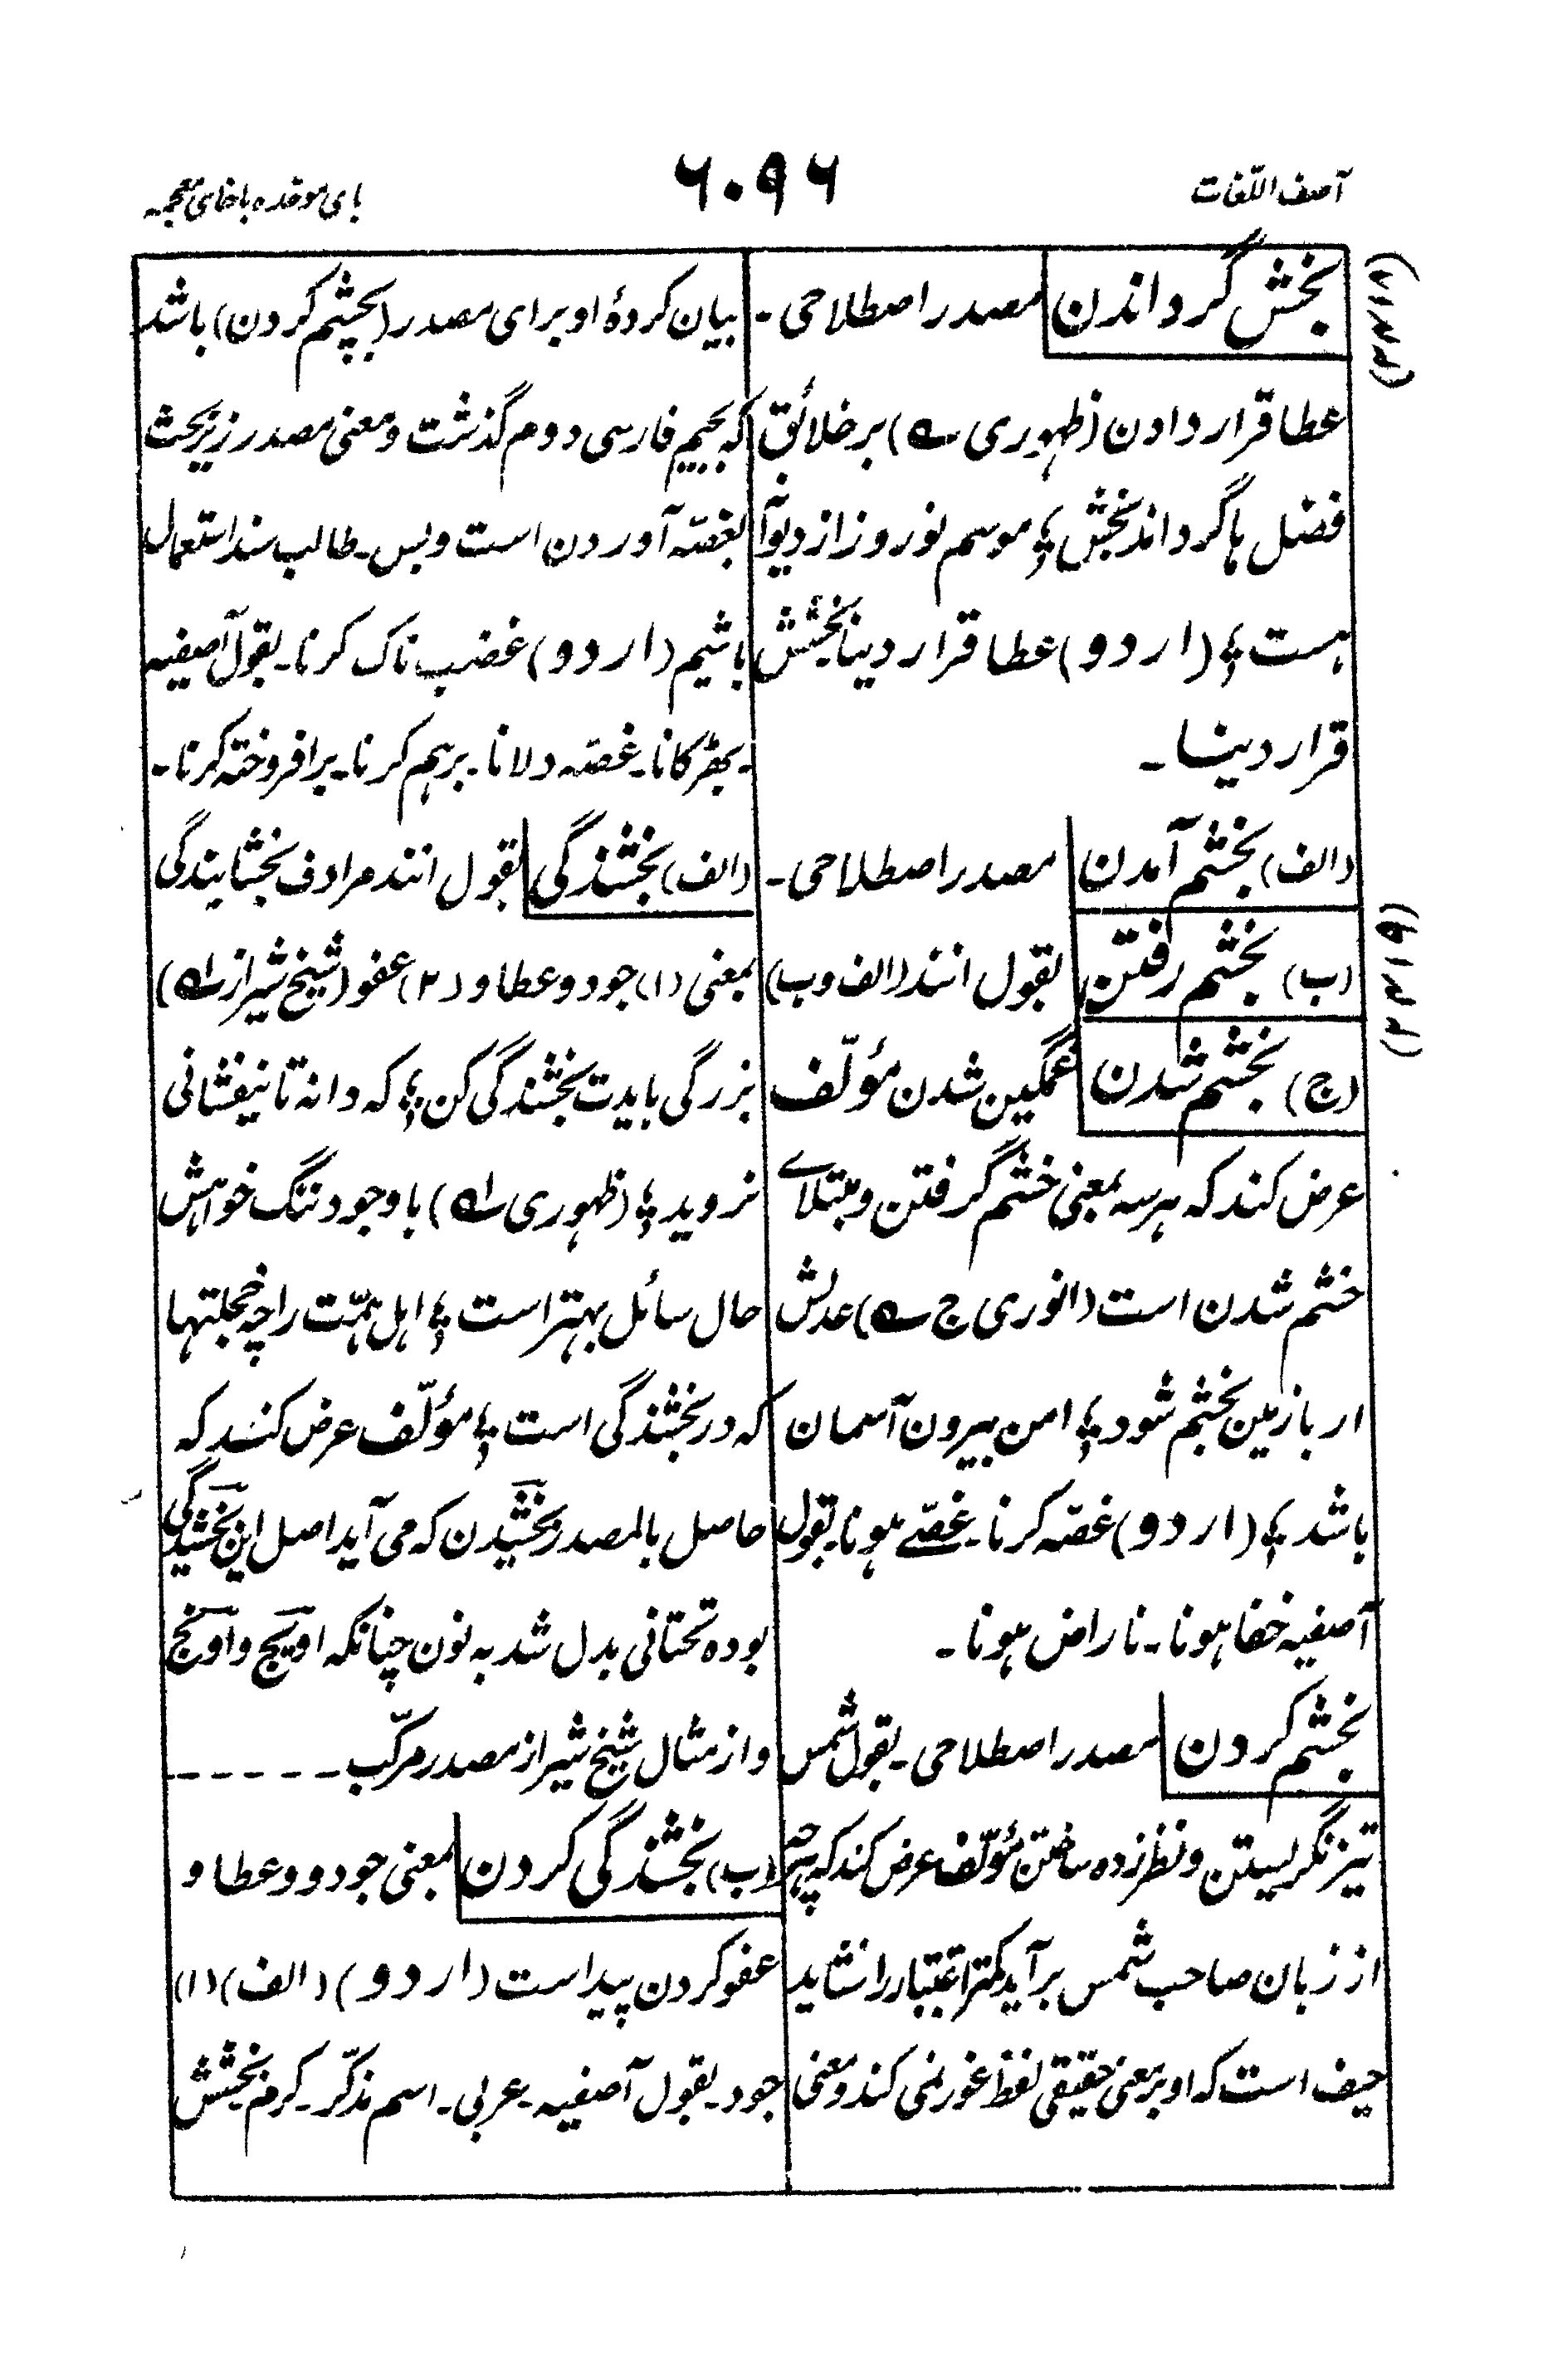 آصف اللّغات
۶۰۹۶
بای موحّده باخای معجمہ
بخش گرداندن مصدر اصطلاحی۔
عطا قرار دادن (ظہوری ؎) بر خلائق
فضل ہا گرداند بخش ؛ موسم نوروز از دیوآ
ہست ؛ (اردو) عطا قرار دینا۔ بخشش
قرار دینا۔
(الف) بخشم آمدن مصدر اصطلاحی۔
(ب) بخشم رفتن بقول انند (الف وب)
(ج) بخشم شدن غمگین شدن مؤلّف
عرض کند کہ ہر سہ بمعنی خشم گرفتن و مبتلاے
خشم شدن است (انوری ج ؎) عدلش
ار بازمین بخشم شود ؛ امن بیرون آسمان
باشد ؛ (اردو) غصّہ کرنا۔ غصّے ہونا۔ بقول
آصفیہ خفا ہونا۔ ناراض ہونا۔
بخشم کردن مصدر اصطلاحی۔ بقول شمس
تیز نگریستن و نظر زدہ ساختن مؤلّف عرض کند کہ ہرچہ
از زبان صاحب شمس برآید کمتر اعتبار را نشاید
حیف است کہ او بر معنی حقیقی لفظ غور نمی کند و معنی
بیان کردۂ او برای مصدر (بچشم کردن) باشد
کہ بجیم فارسی دوم گذشت و معنی مصدر زیر بحث
بغصّہ آوردن است وبس۔ طالب سند استعمال
باشیم (اردو) غضب ناک کرنا۔ بقول آصفیہ
۔بھڑکانا۔ غصّہ دلانا۔ برہم کرنا۔ برافروختہ کرنا۔
(الف) بخشندگی بقول انند مرادف بخشایندگی
بمعنی (۱) جود و عطا و (۲) عفو (شیخ شیراز ؎۱)
بزرگی بایدت بخشندگی کن ؛ کہ دانہ تا نیفشانی
نروید ؛ (ظہوری ؎۱) با وجود ننگ خواہش
حال سائل بہتر است ؛ اہل ہمّت را چہ خجلتہا
کہ در بخشندگی است ؛ مؤلّف عرض کند کہ
حاصل بالمصدر بخشیدن کہ می آید اصل این بخشیدگی
بودہ تحتانی بدل شد بہ نون چنانکہ اویج و اونج
و از مثال شیخ شیراز مصدر مرکّب - - - - - -
(ب) بخشندگی کردن بمعنی جود و عطا و
عفو کردن پیداست (اردو) (الف) (۱)
جود۔ بقول آصفیہ۔ عربی۔ اسم مذکّر۔ کرم بخشش
(۲۳۱۸)
(۲۳۱۹)